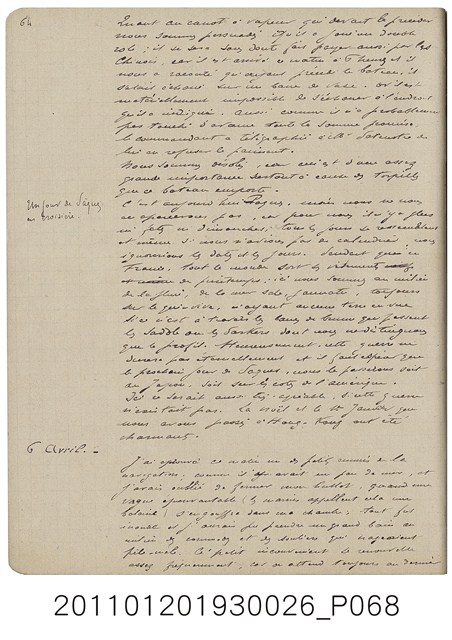 64
Quant au canot à vapeur qui devait le prendre
nous sommes persuadés qu'il a joué un double
rôle ; il se sera sans doute fait payer aussi par les
Chinois, car il est arrivé ce matin à 7 heures et il
nous a raconté qu'ayant le bateau, il
s'était échoué sur un banc de vase. or il est
matériellement impossible de s'échouer à l'endroit
qu'il a indiqué. Aussi comme il n'a probablement
pas touché d'avance toute la somme promise,
le commandant a télégraphié à Mr de
lui en refuser le paiement.
Nous sommes désolés, car ceci est d'une assez
grande importance surtout à cause des torpilles
que ce bateau emporte.
Un jour de Pâques
en croisière.
C'est aujourd'hui Pâques, mais nous ne nous
en apercevons pas, car pour nous il n'y a plus
ni fêtes ni dimanches, tous les jours se ressemblent
et même si nous n'avions pas de calendrier, nous
ignorerions les dates et les jours. Pendant qu'en
France, tout le monde sort les vêtements
de printemps ; ici nous sommes au milieu
de la pluie, de la mer sale, jaunâtre, toujours
sur le qui-vive, n'ayant aucune terre en vue
si ce n'est à travers les bancs de brume qui passent
les Saddle ou les dont nous ne distinguons
que le profil. Heureusement, cette guerre ne
durera pas éternellement et il faut espérer que
le prochain jour de Pâques, nous le passerons soit
au Japon, soit sur les côtes de l'Amérique.
Ici ce serait aussi très agréable, si cette guerre
n'existait pas. La Noël et le 1er Janvier que
nous avons passés à Hong-Kong ont été
charmants.
6 Avril. -
J'ai éprouvé ce matin un des petits ennuis de la
navigation. comme il y avait un peu de mer, et
j'avais oublié de fermer mon hublot, quand une
vague épouvantable (les marins appellent cela une
baleine) s'engouffre dans ma chambre ; tout fut
inondé et j'aurais pu prendre un grand bain au
milieu des et des souliers qui nageaient
pêle-mêle. Ce petit inconvénient se renouvelle
assez fréquemment, car on attend toujours au dernier
201101201930026_P068